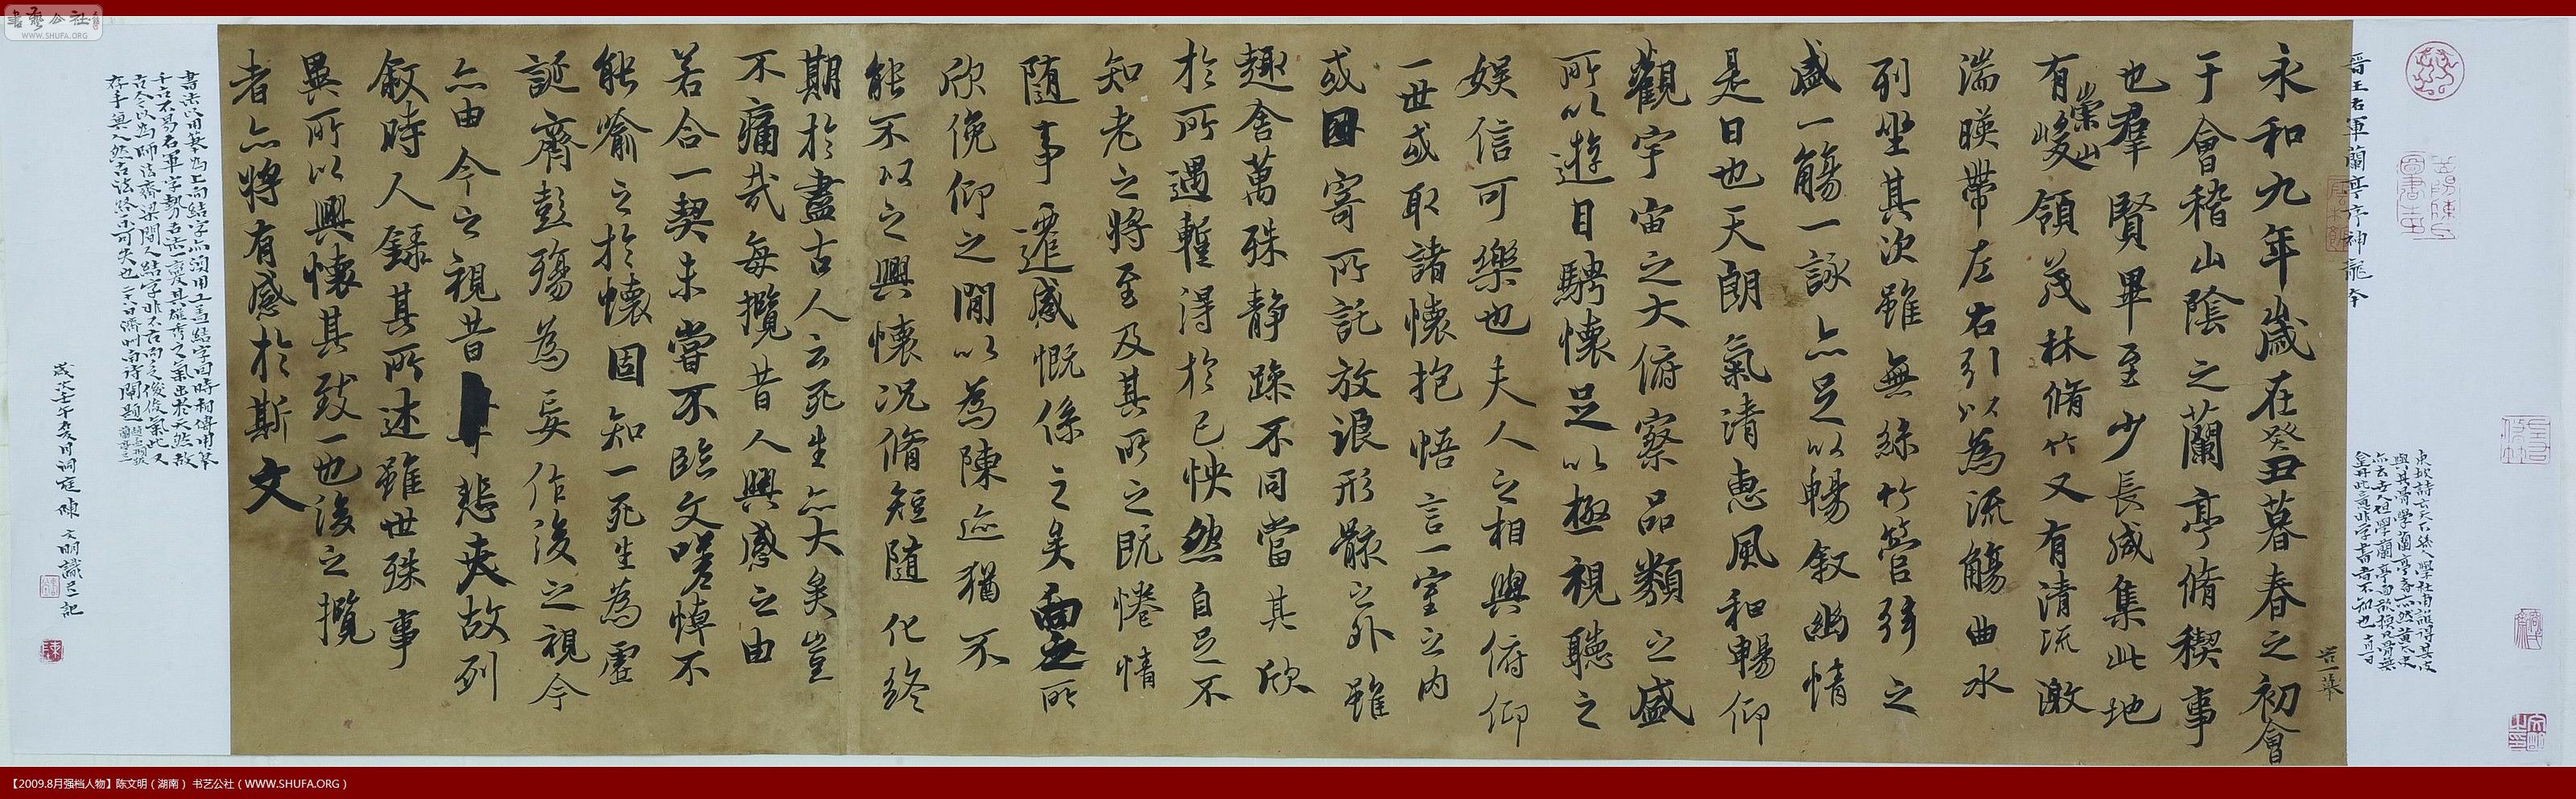 書藝公社
WWW.SHUFA.ORG
晉王右軍蘭亭序神龍本
永和九年歲在癸丑暮春之初會
于會稽山陰之蘭亭脩稧事
也羣賢畢至少長咸集此地
有崇山峻領茂林脩竹又有清流激
湍暎帶左右引以為流觴曲水
列坐其次雖無絲竹管弦之
盛一觴一詠亦足以暢叙幽情
是日也天朗氣清惠風和暢仰
觀宇宙之大俯察品類之盛
所以遊目騁懷足以極視聽之
娛信可樂也夫人之相與俯仰
一世或取諸懷抱悟言一室之內
或因寄所託放浪形骸之外雖
趣舍萬殊靜躁不同當其欣
於所遇暫得於己怏然自足不
知老之將至及其所之既惓情
隨事遷感慨係之矣向之所
欣俛仰之間以為陳迹猶不
能不以之興懷況脩短隨化終
期於盡古人云死生亦大矣豈
不痛哉每攬昔人興感之由
若合一契未嘗不臨文嗟悼不
能喻之於懷固知一死生為虛
誕齊彭殤為妄作後之視今
亦由今之視昔悲夫故列
叙時人錄其所述雖世殊事
異所以興懷其致一也後之攬
者亦將有感於斯文
書法以用筆為上而結字亦須用工蓋結字因時相傳用筆
千古不易右軍字勢古法一變其雄秀之氣出於天然故
古今以為師法齊梁間人結字非不古而乏俊氣此又
存乎其人然古法終不可失也
歲次壬午 月洞庭陳文明識 記
【2009.8月强档人物】陈文明（湖南） 书艺公社（WWW.SHUFA.ORG）